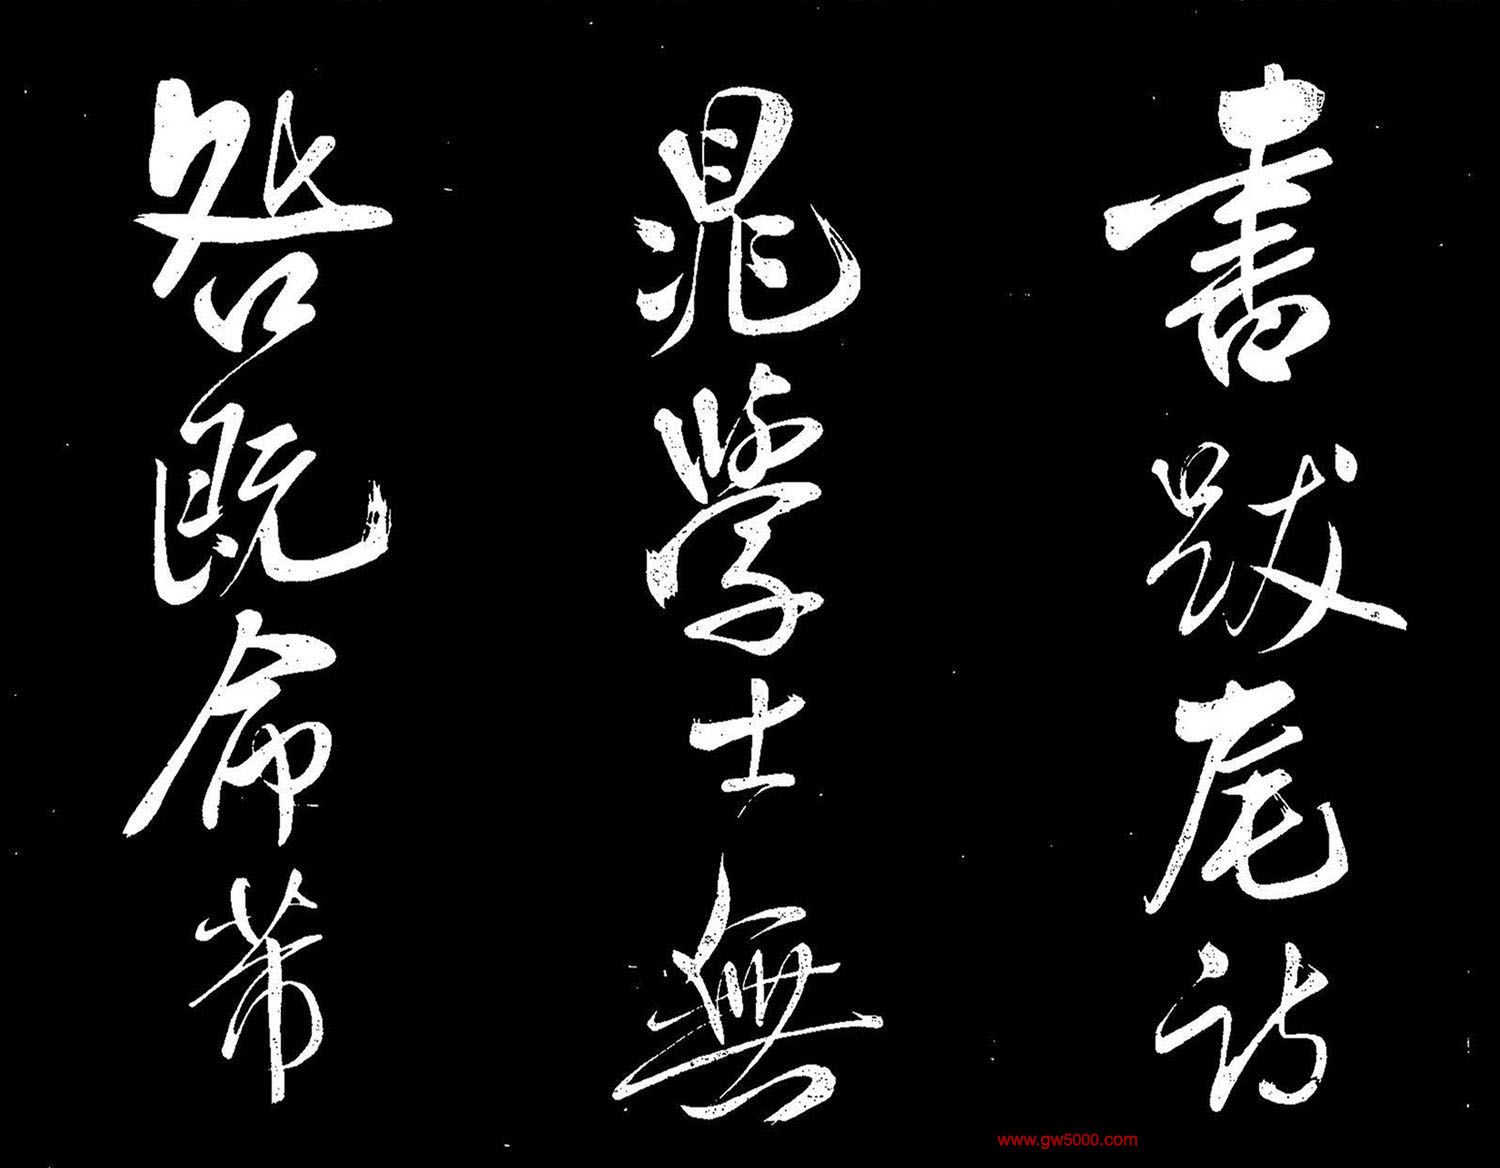 書跋尾訪
晁學士無
咎既命芾
www.gw5000.com